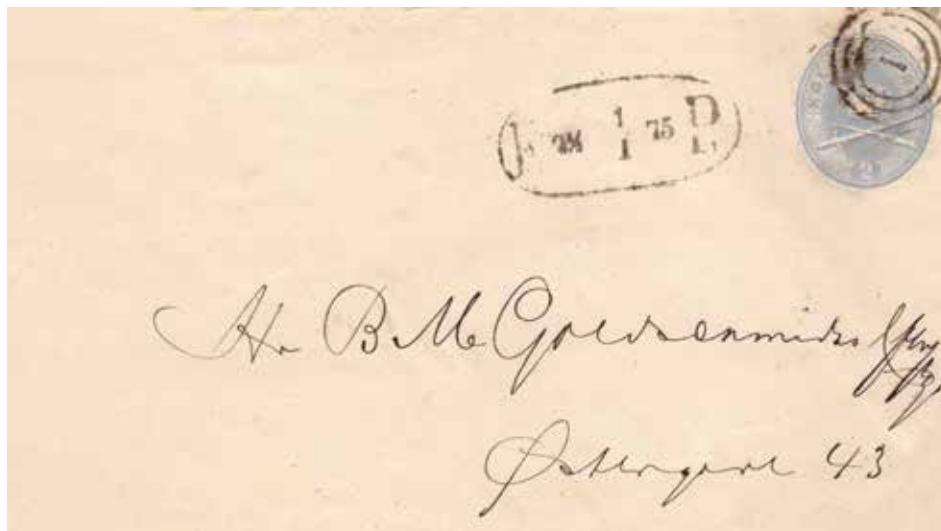 1
2½ 1/1 75 P.
Hr B M Goldschmidts
Østergade 43